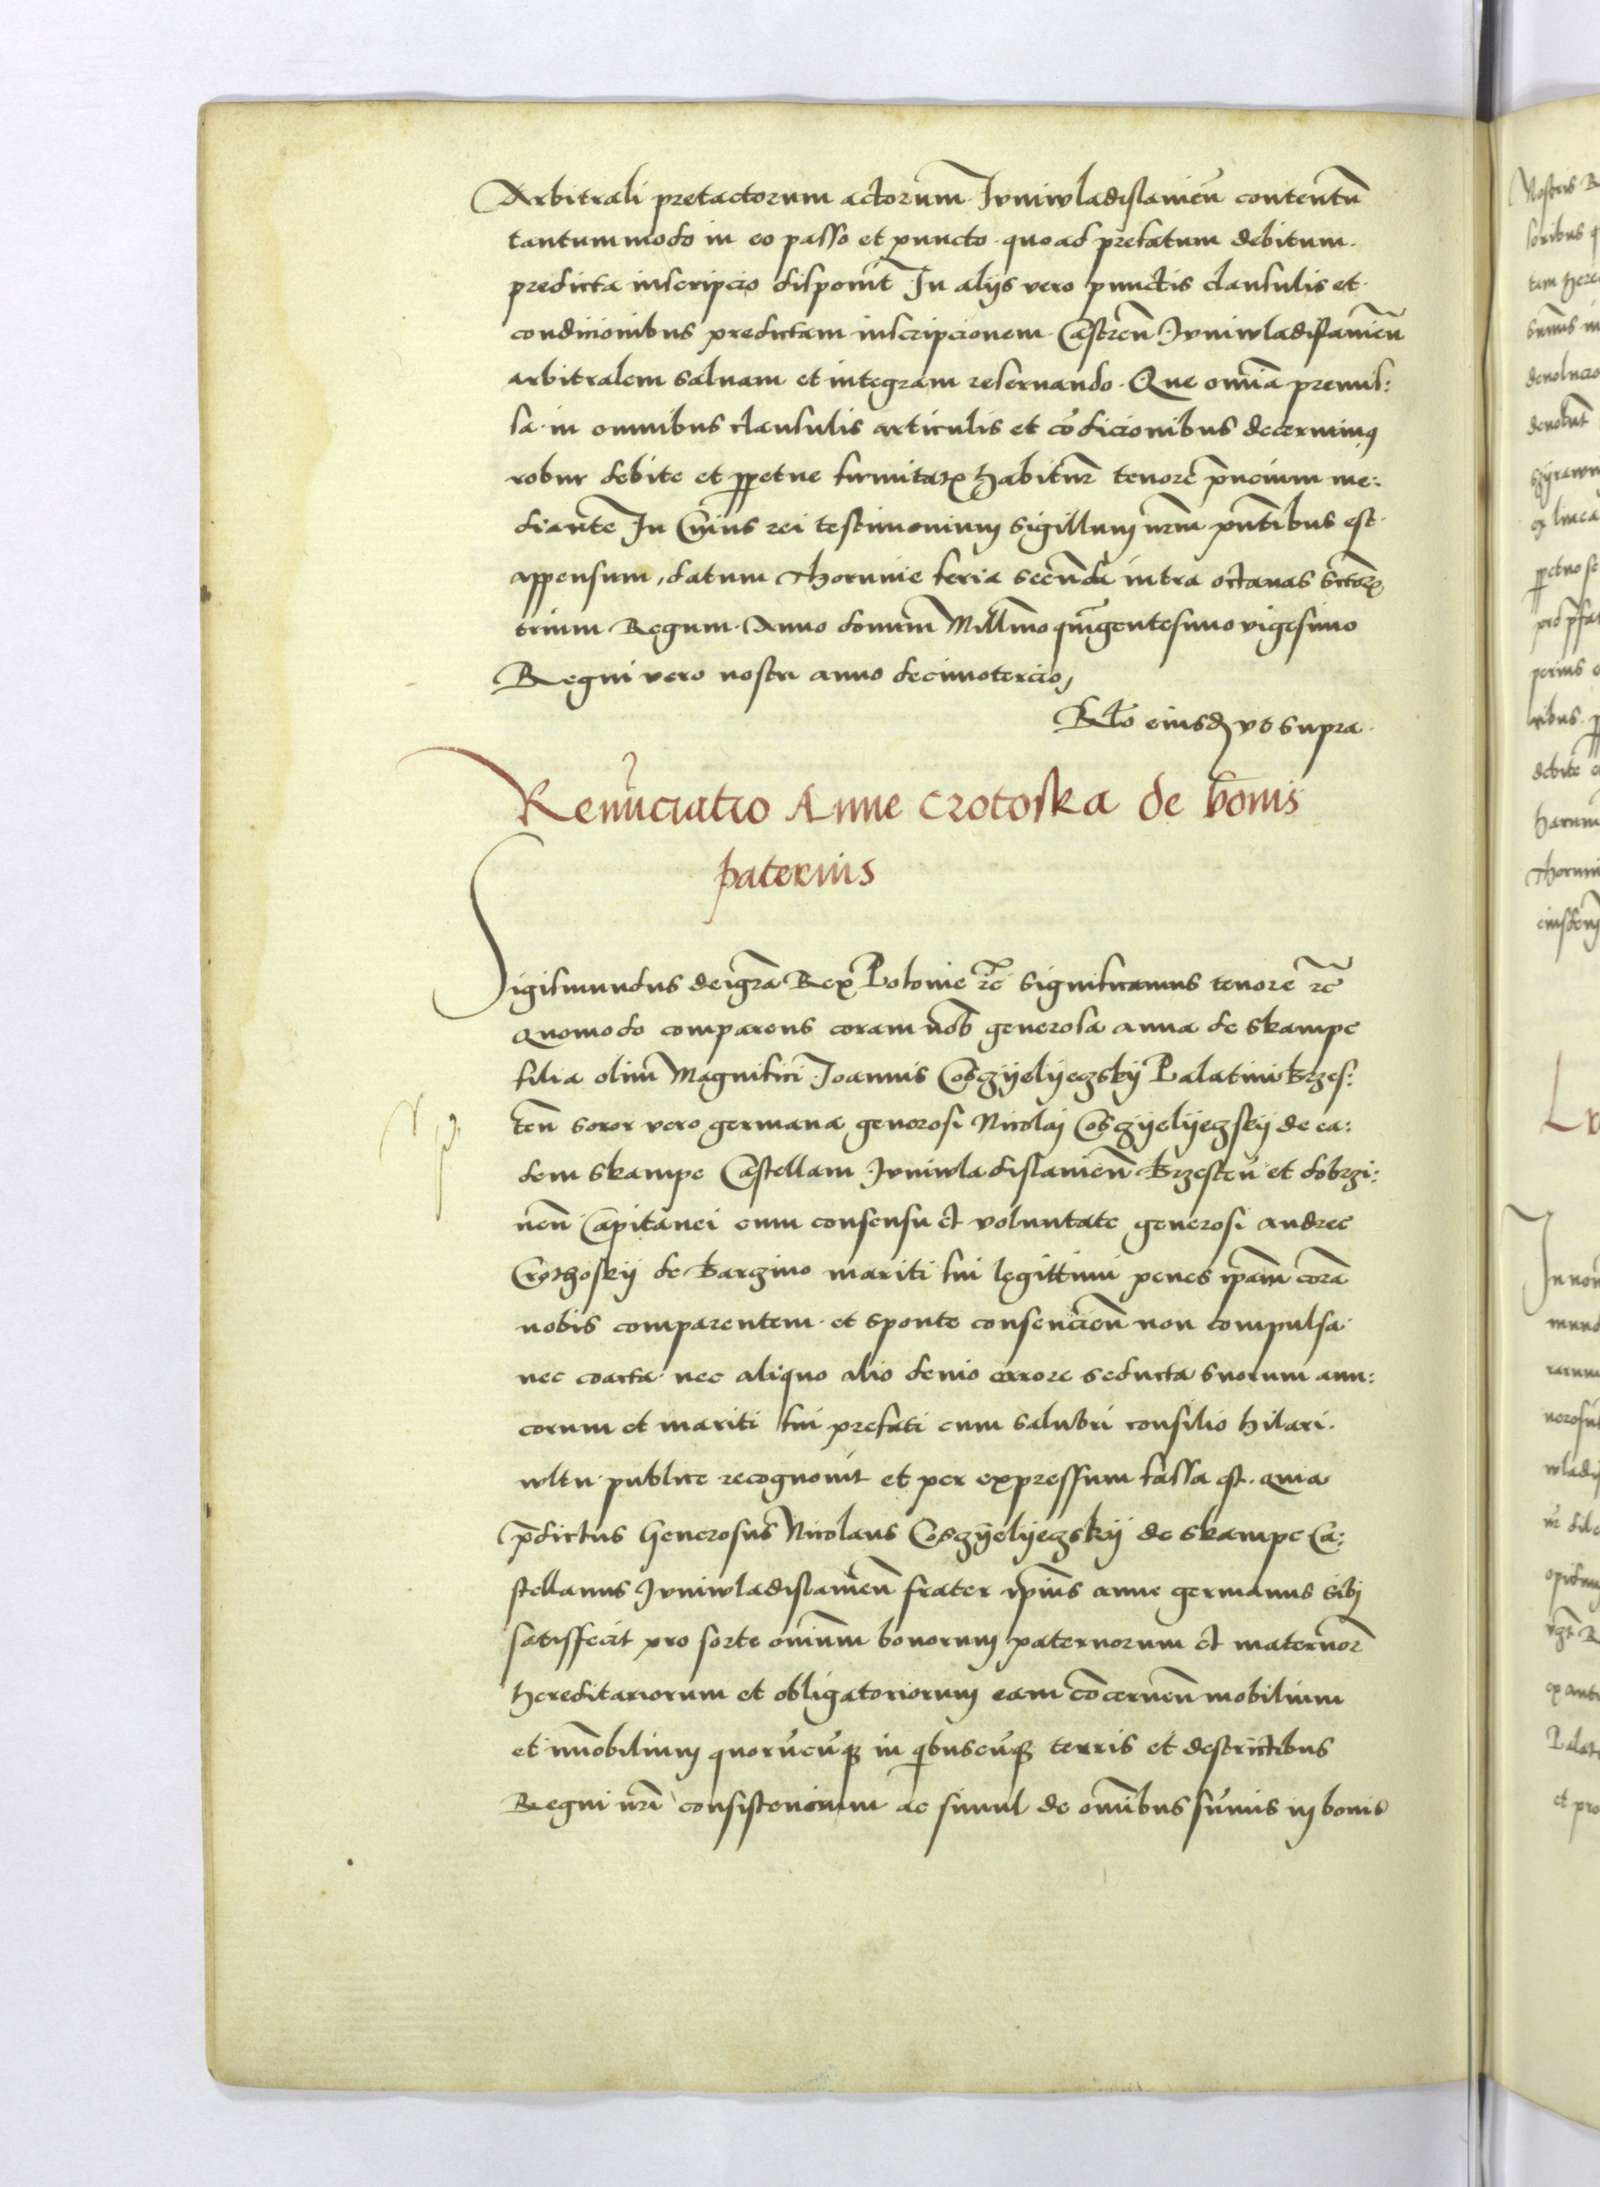 Arbitrali pretactorum actorum Juniwladislavien̄ contentū
tantummodo in eo passo et puncto quoad prefatum debitum
predicta inscripcio disponit̄ In alijs vero punctis clausulis et
condicionibus predictam inscripcionem Castren̄ Juniwladislavien̄
arbitralem salvam et integram reservando. Que omīa premis:
sa in omnibus clausulis articulis et cōdicionibus decernimꝰ
robur debite et ꝑpetue firmitatꝭ habitur̄ tenore p̄ncium me:
diante In Cuius rei testimonium sigillum nr̄m pn̄tibus est
appensum, datum Thorunie feria secūda intra octavas sctorꝝ
trium Regum. Anno domini Millmo quīgentesimo vigesimo
Regni vero nostri anno decimotercio,
Rlo eiusdꝫ vt supra
Renūciatio Anne Crotoska de bonis
paternis
Sigismundus dei gr̄a Rex Polonie rc̄ significamus tenore rc̄
Quomodo comparens coram nob̄ generosa anna de skampe
filia olim Magnifici Joannis Cosczyelyeczskÿ Palatini Brzes:
ten̄ soror vero germana generosi Nicolai Cosczyelyeczskij de ea:
dem skampe Castellani Juniwladislavien̄ Brzesten̄ et dobrzi:
nen̄ Capitanei cum consensu et voluntate generosi andree
Crothoskij de Barczino mariti sui legittimi penes ip̄am corā
nobis comparentem et sponte consencien̄ non compulsa
nec coacta nec aliquo alio devio errore seducta suorum ami:
corum et mariti sui prefati cum salubri consilio hilari
wltu publice recognovit et per expressum fassa est. quia
p̄dictus Generosus Nicolaus Cosczyelyeczskij de skampe Ca:
stellanus Juniwladislavien̄ frater ip̄ius anne germanus sibi
satisfecit pro sorte omnium bonorum paternorum et maternor̄
hereditariorum et obligatoriorum eam cōcernen̄ mobilium
et īmobilium quorūcūqꝫ in qbuscūqꝫ terris et districtibus
Regni nr̄i consistencium ac simul de omībus sūmis in bonis